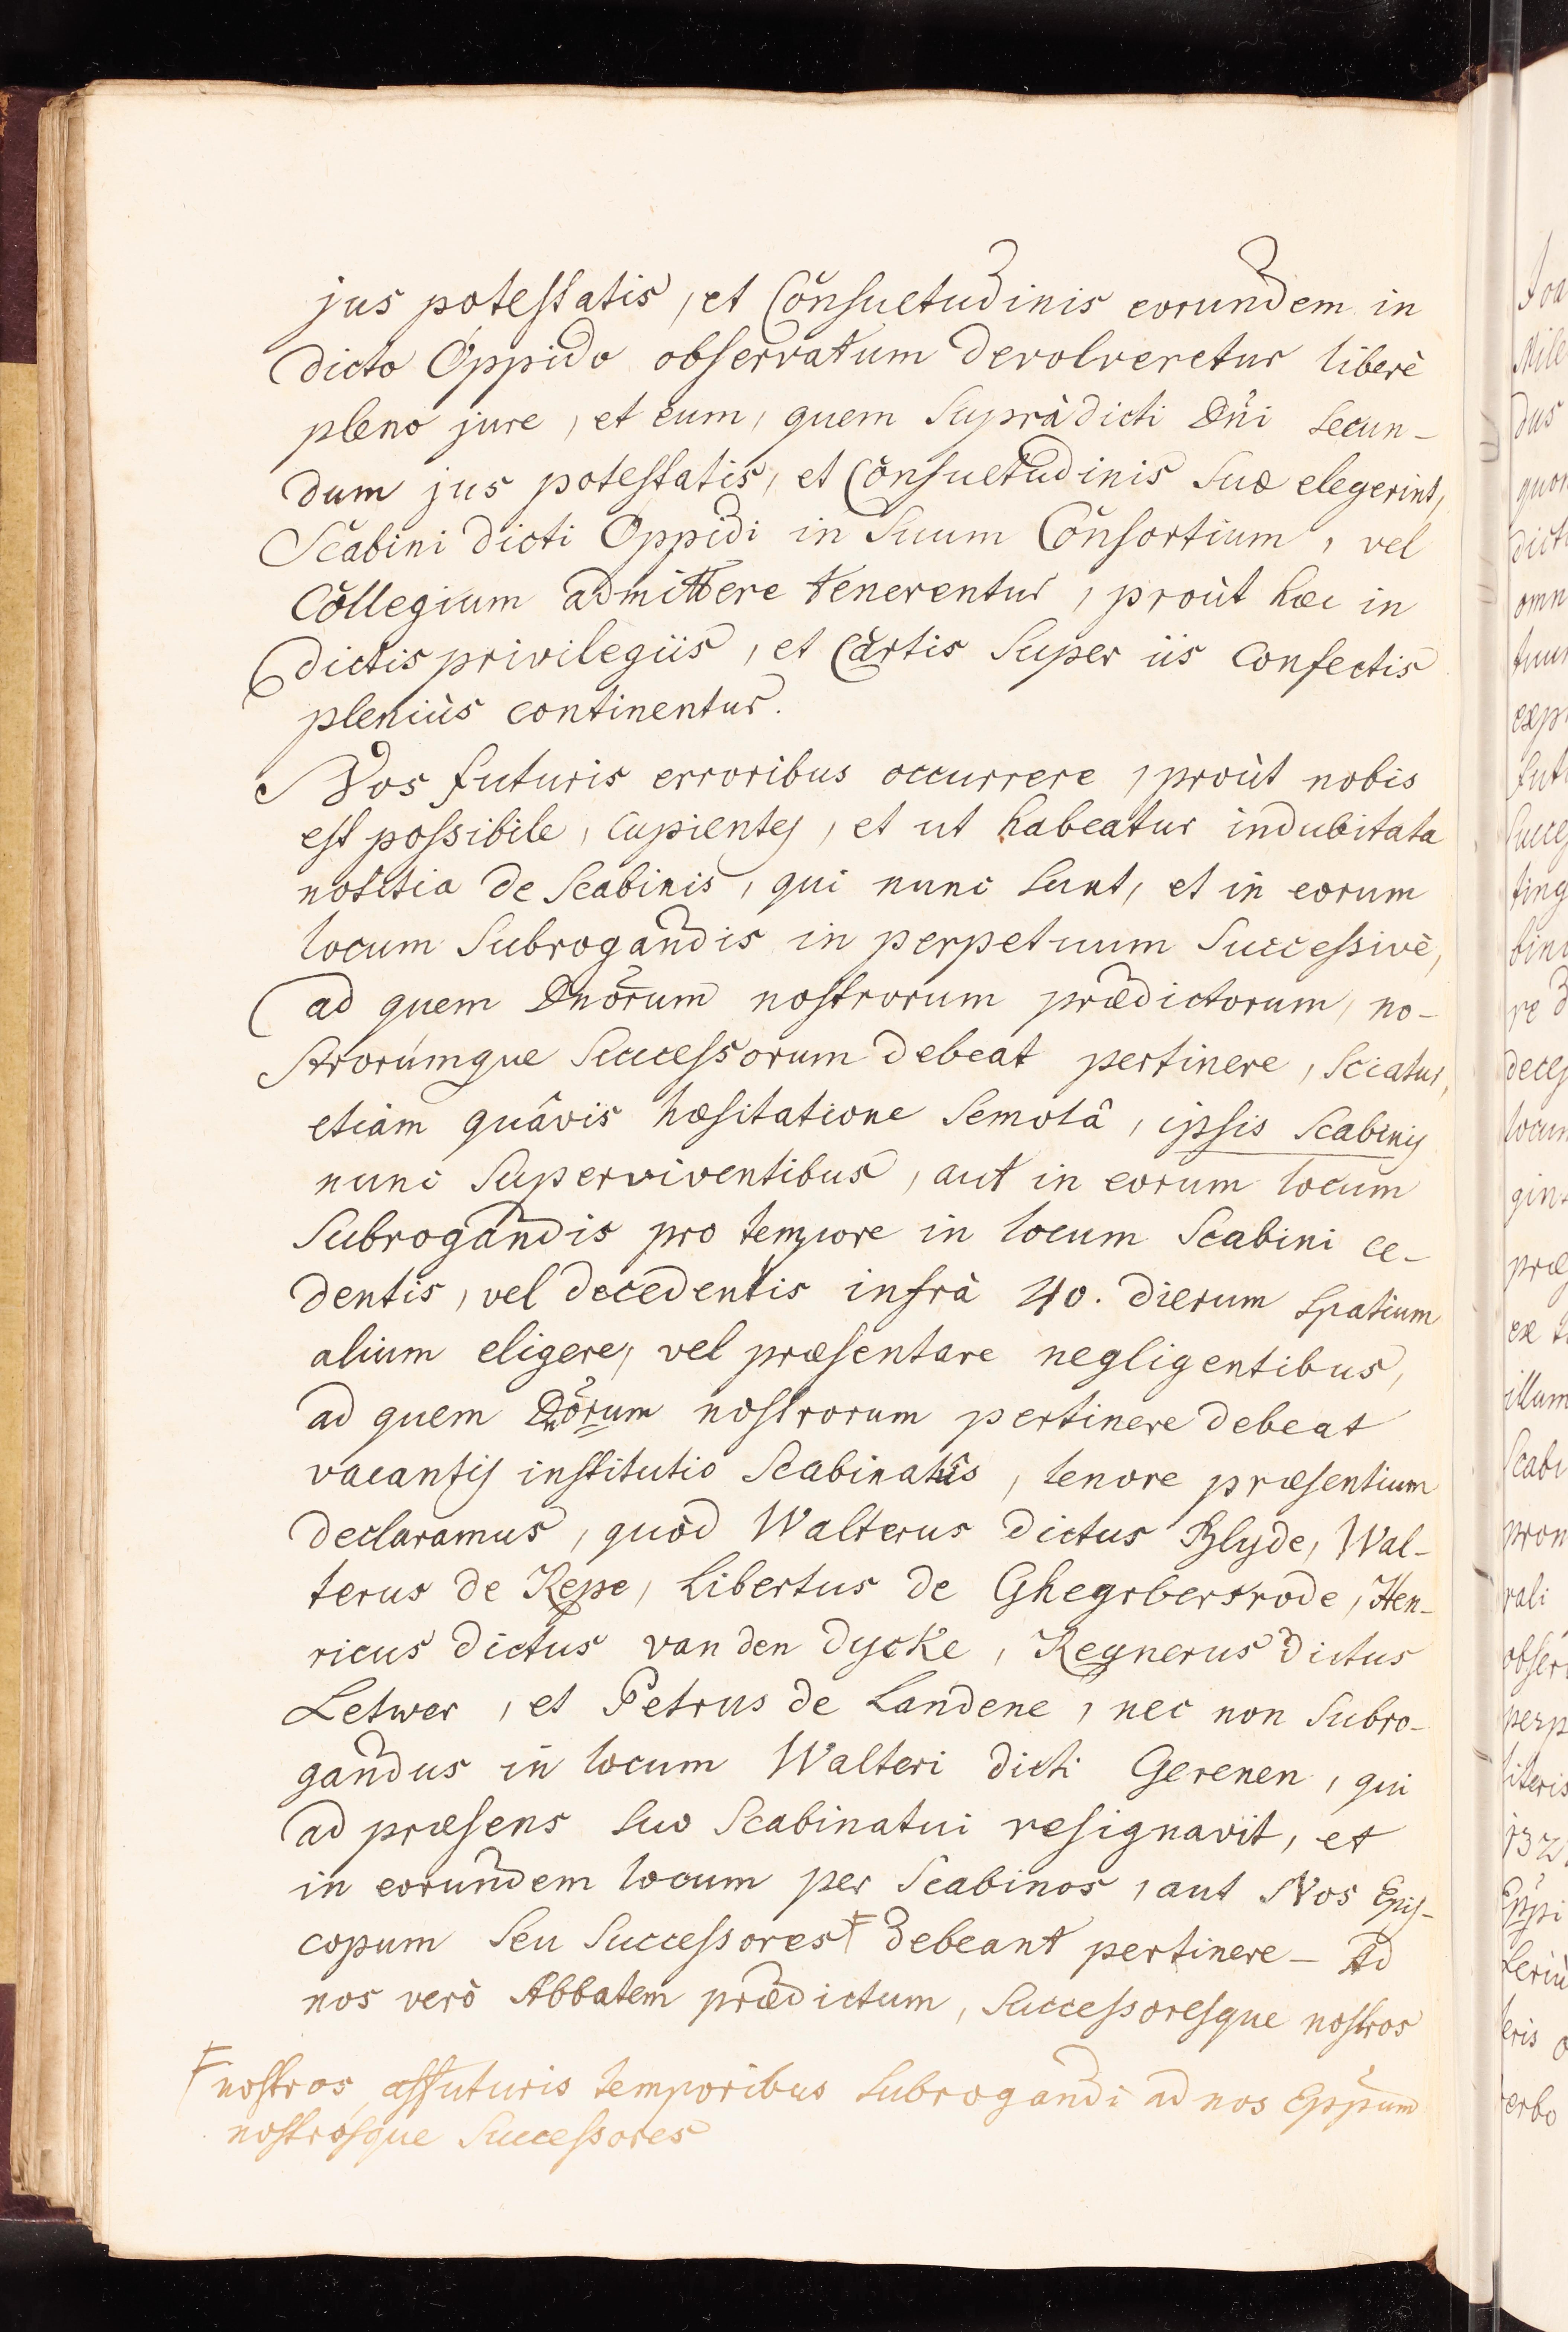 jus potestatis, et Consuetudinis eorundem in
dicto Oppido observatum devolveretur liberè
pleno jure, et eum, quem Supràdicti Dni secun-
dum jus potestatis, et Consuetudinis suæ elegerint,
Scabini dicti Oppidi in Suum Consortium, vel
Collegium admittere tenerentur, proùt hæc in
dictis privilegiis, et Cartis Super iis Confectis
pleniùs continentur.
Nos futuris erroribus occurrere, proùt nobis
est possibile, cupientes, et ut habeatur indubitata
notitia de Scabinis, qui nunc sunt, et in eorum
locum Subrogandis in perpetuum Successivè,
ad quem Dnorum nostrorum prædictorum, no-
strorúmque Successorum debeat pertinere, Sciatur,
etiàm quâvis hæsitatione Semotâ, ipsis Scabinis
nunc Superviventibus, aut in eorum locum
Subrogandis pro tempore in locum Scabini ce-
dentis, vel decedentis infrà 40. dierum spatium
alium eligere, vel præsentare negligentibus,
ad quem Dnorum nostrorum pertinere debeat
vacantis institutio Scabinatûs, tenore præsentium
declaramus, quòd Walterus dictus Blyde, Wal-
terus de Repe, Libertus de Ghegrbersrode, Hen-
ricus dictus van den Dycke, Reynerus dictus
Letwer, et Petrus de Landene, nec non Subro-
gandus in locum Walteri dicti Gerenen, qui
ad præsens suo Scabinatui resignavit, et
in eorundem locum per Scabinos, aut Nos Epis-
copum Seu Successores ǂ debeant pertinere - Ad
nos verò Abbatem prædictum, Successoresque nostros
ǂ nostros futuris temporibus subrogandi ad nos Eppum
nostrósque Successores
Joa
Mile
dus
quor
dicti
omn